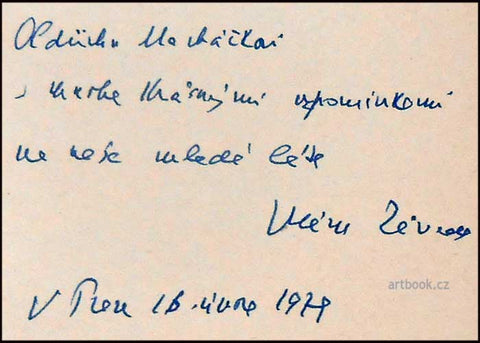 Oldřichu Macháčkovi
s mnoha krásnými vzpomínkami
na naše mladá léta
Vilém Závada
V Praze 16. února 1979
artbook.cz